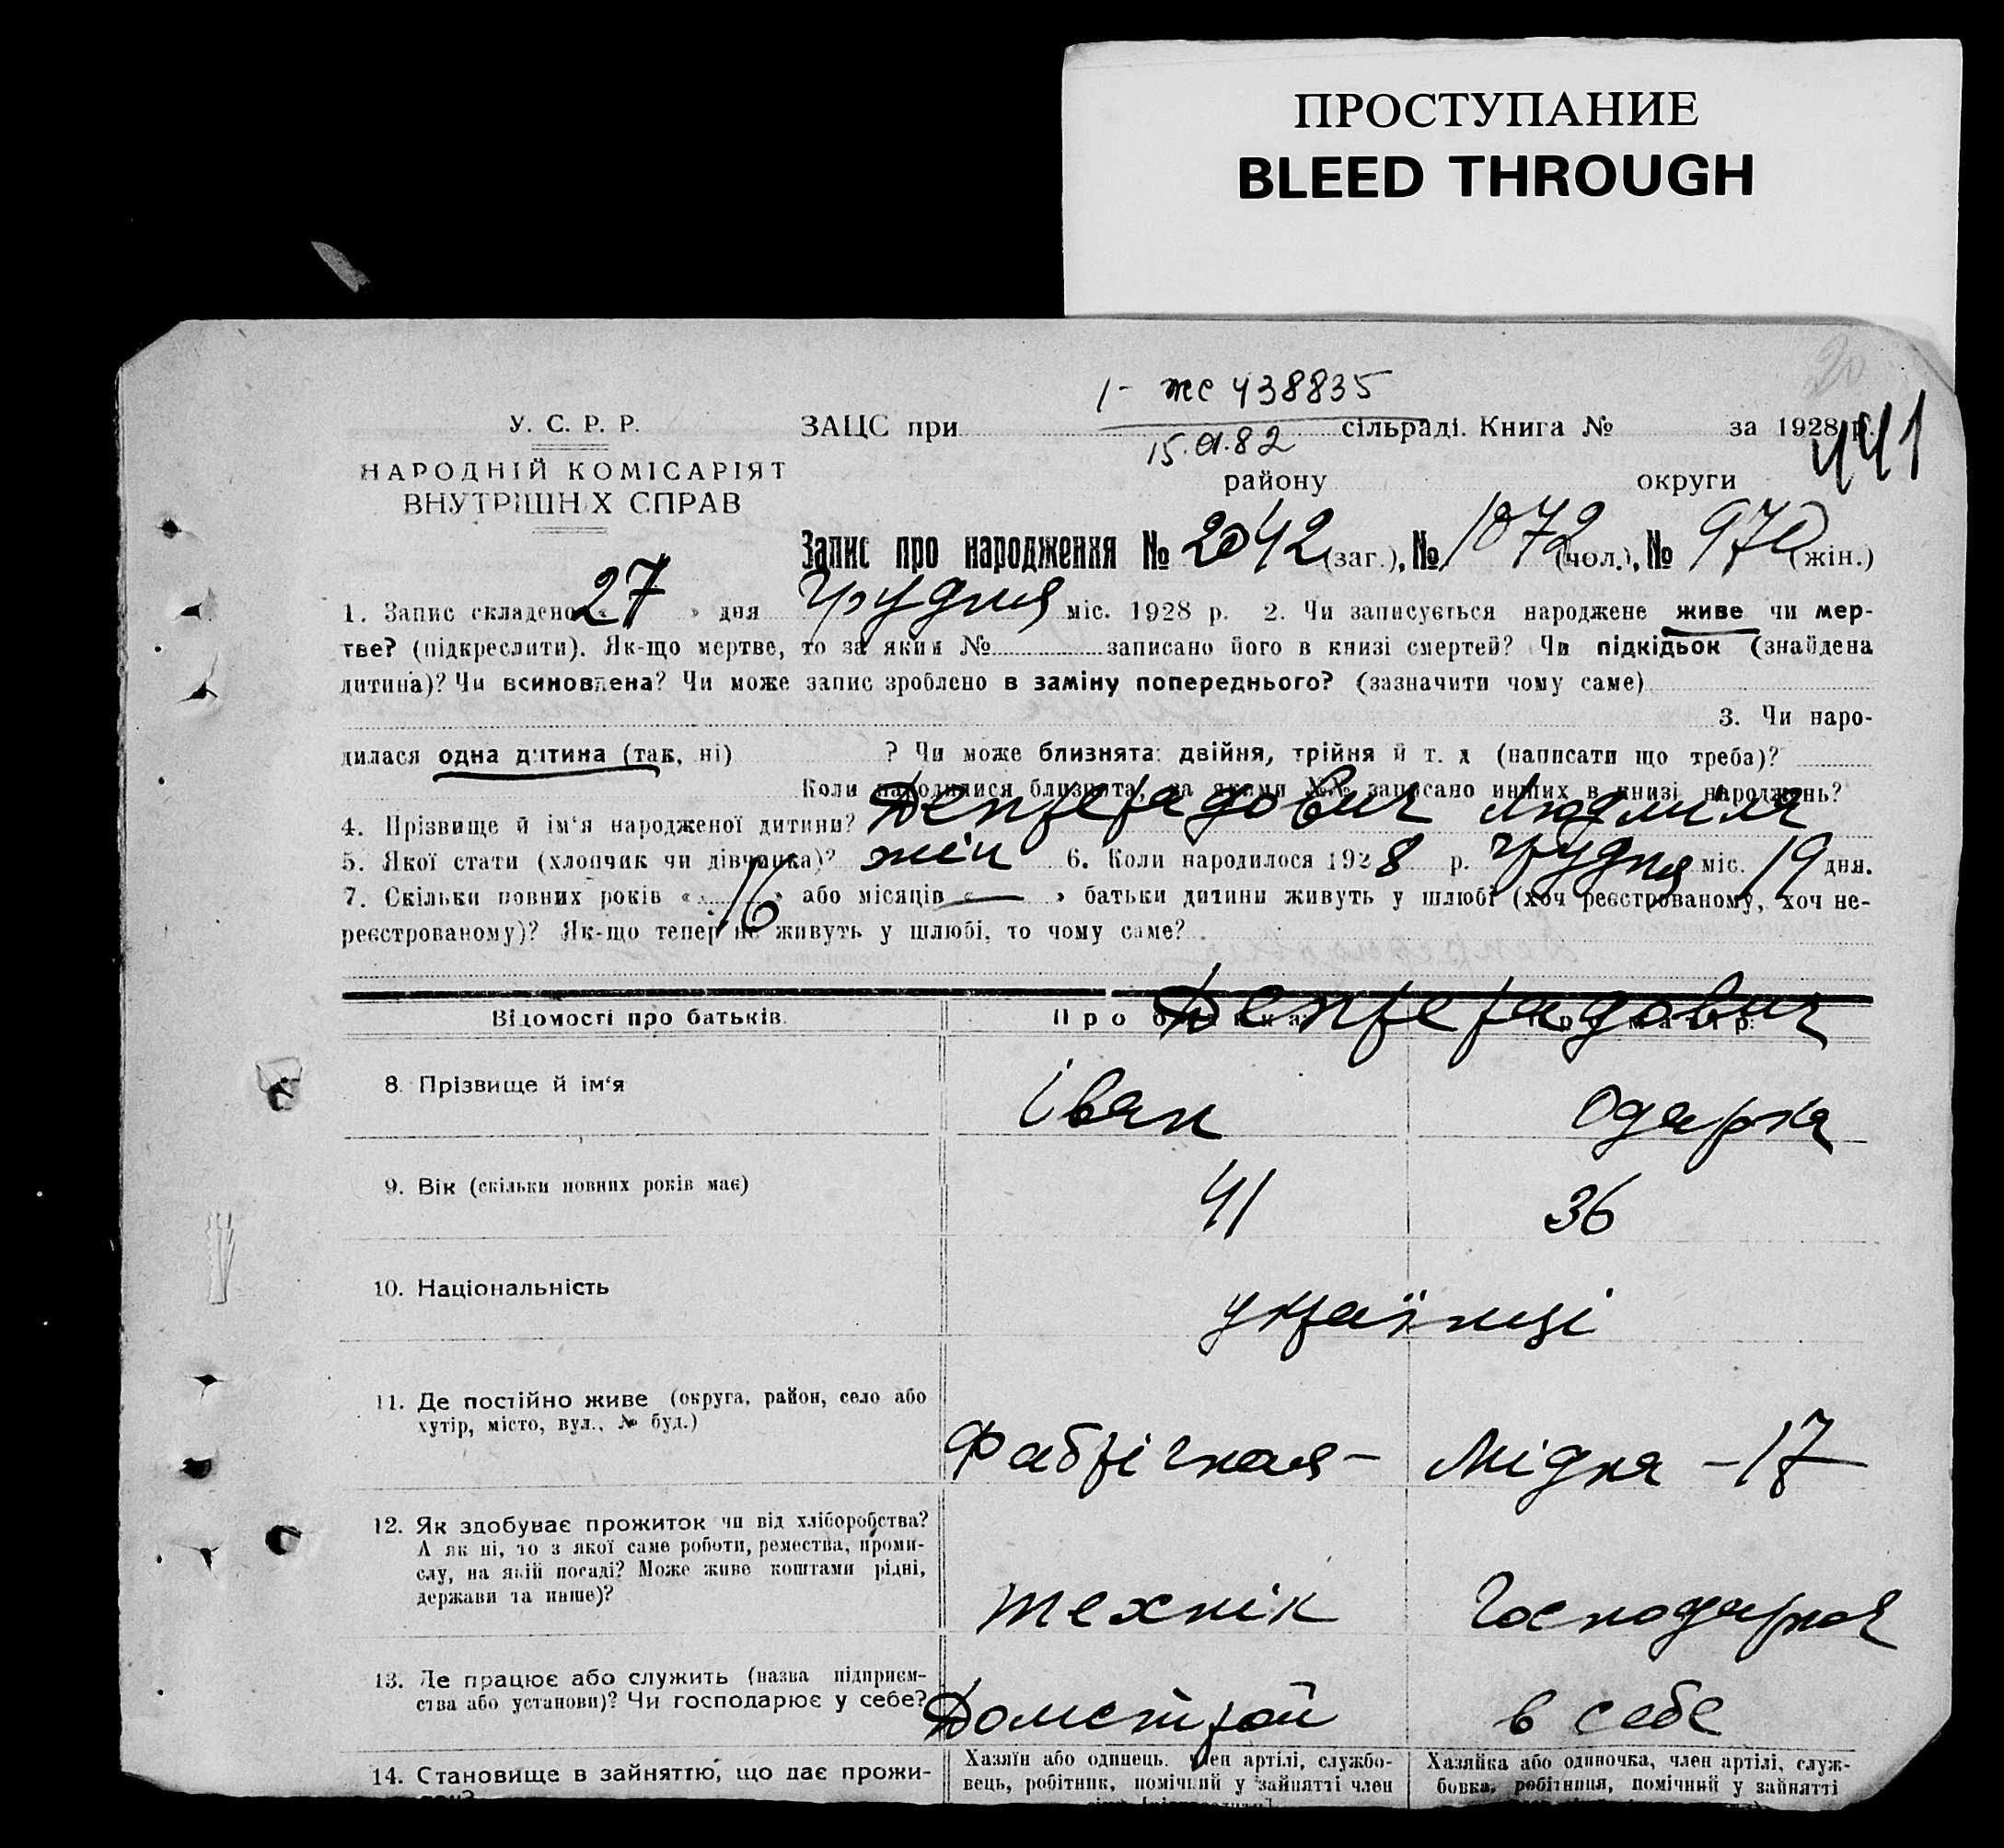 ПРОСТУПАНИЕ
BLEED THROUGH
1- же 438835
У. С. Р. Р. ЗАЦС при сільраді. Книга № за 1928 р.
15. 82
441
НАРОДНІЙ КОМІСАРІЯТ
району округи
ВНУТРІШНІХ СПРАВ
Запис про народження № 2042 (заг.), № 1072 (чол.), № 970 (жін.)
1. Запис складено « 27 » дня грудня міс. 1928 р. 2. Чи записується народжене живе чи мер-
тве? (підкреслити). Як-що мертве, то за яким № записано його в книзі смертей? Чи підкідьок (знайдена
дитина)? Чи всиновлена? Чи може запис зроблено в заміну попереднього? (зазначити чому саме)
3. Чи наро-
дилася одна дитина (так, ні) ? Чи може близнята: двійня, трійня й т. д (написати що треба)?
Коли народилися близнята, за якими №№ записано инших в книзі народжень?
4. Прізвище й ім'я народженої дитини? Людмила
5. Якої стати (хлопчик чи дівчинка)? жін 6. Коли народилося 1928 р. грудня міс. 19 дня.
7. Скільки повних років « 16 » або місяців « — » батьки дитини живуть у шлюбі (хоч реєстрованому, хоч не-
реєстрованому)? Як-що тепер не живуть у шлюбі, то чому саме?
Відомості про батьків. Про батька Про матір
8. Прізвище й ім'я Іван Одарка
9. Вік (скільки повних років має) 41 36
10. Національність українці
11. Де постійно живе (округа, район, село або
хутір, місто, вул., № буд.)
Фабрічная – Мідна – 17
12. Як здобуває прожиток чи від хліборобства?
А як ні, то з якої саме роботи, ремества, проми-
слу, на якій посаді? Може живе коштами рідні,
держави та инше)?
технік Господарка
13. Де працює або служить (назва підприєм-
ства або установи)? Чи господарює у себе?
Доместрой в себе
14. Становище в зайняттю, що дає прожи-
Хазяїн або одинець. член артілі, службо-
вець, робітник, помічний у зайнятті член
Хазяйка або одиночка, член артілі, служ-
бовка, робітниця, помічний у зайнятті